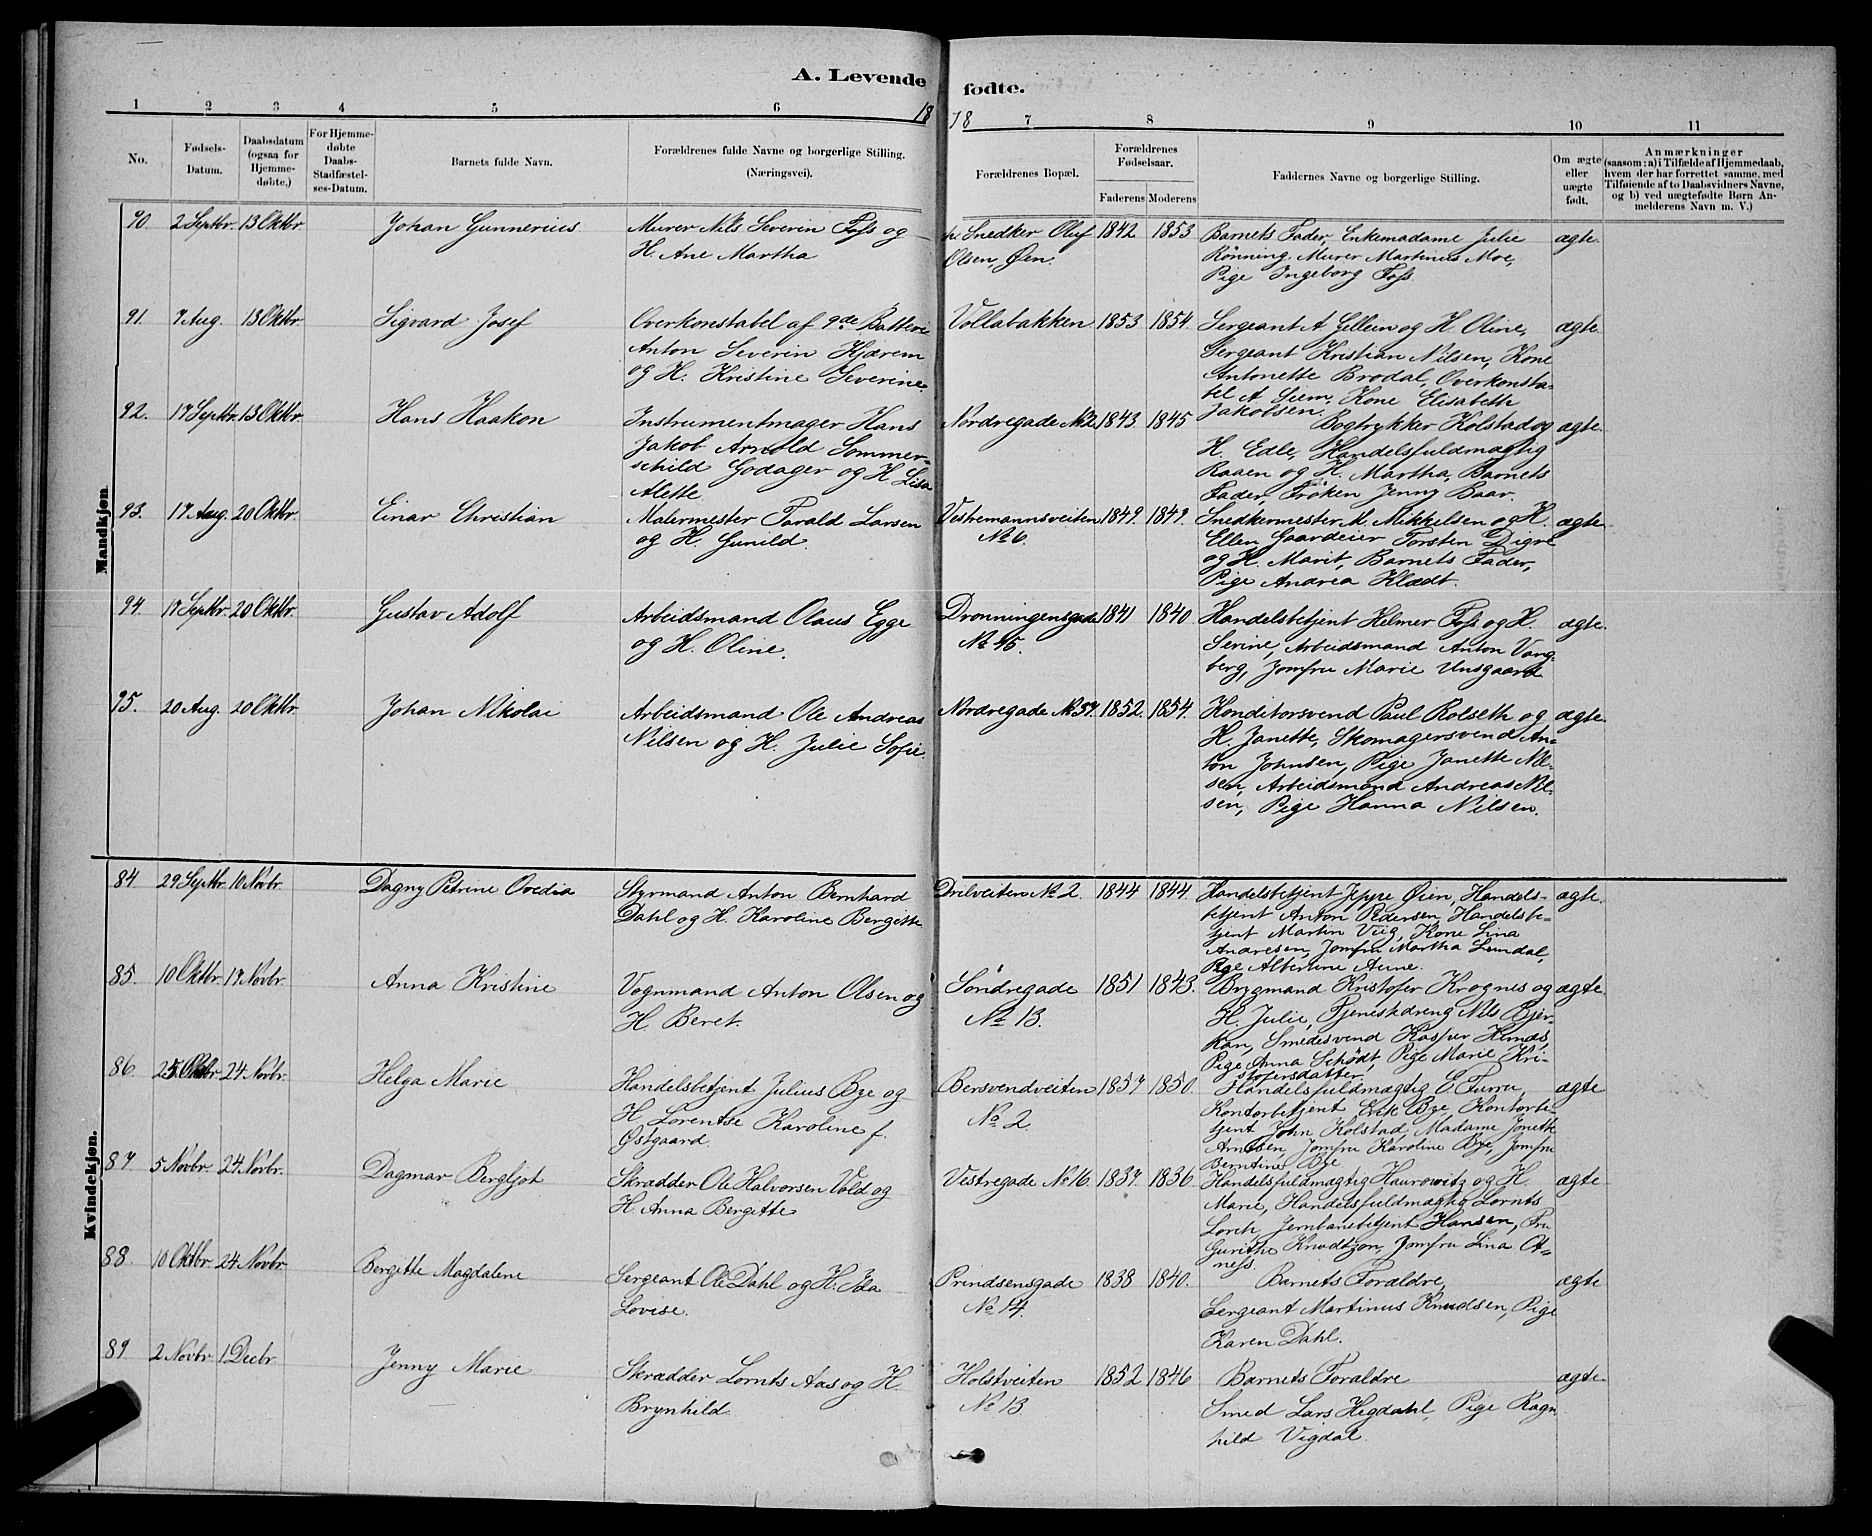 A. Levende fødte.
18 78
1 2 3 4 5 6 7 8 9 10 11
No.
Fødsels-
Datum.
Daabsdatum
(ogsaa for
Hjemme-
døbte.)
For Hjemme-
døbte
Daabs-
Stadfæstel-
ses-Datum.
Barnets fulde Navn.
Forældrenes fulde Navne og borgerlige Stilling.
(Næringsvei).
Forældrenes Bopæl.
Forældrenes
Fødselsaar.
Faderens Moderens
Faddernes Navne og borgerlige Stilling.
Om ægte
eller
uægte
født.
Anmærkninger
(saasom: a) i Tilfælde af Hjemmedaab,
hvem der har forrettet samme, med
Tilføiende af to Daabsvidners Navne,
og b) ved uægtefødte Børn An-
melderens Navn m. V.)
Mandkjøn
90. 2 Septbr. 13 Oktbr. Johan Gunnerius
Murer Nils Severin Foss og
H. Ane Martha
hs. Snedker Oluf
Olsen, Øen.
1842 1853
Barnets Fader, Enkemadame Julie
Rönning, Murer Martinus Moe,
Pige Ingeborg Foss.
ægte.
91. 7 Aug. 13 Oktbr. Sigvard Josef
Overkonstabel af 9de Batteri
Anton Severin Hjærem
og H. Kristine Severine.
Vollabakken 1853 1854.
Sergeant A. Gellein og H. Oline,
Sergeant Kristian Nilsen, Kone
Antonette Brodal, Overkonsta-
bel A Siem, Kone Elisabeth
Jakobsen.
ægte.
92. 17 Septbr. 13 Oktbr. Hans Haakon
Instrumentmager Hans
Jakob Arnold Sommer-
schild Godager og H. Lisa
Alette
Nordregade No 2. 1843. 1845
Bogtrykker Kolstad og
H. Edle, Handelsfuldmægtig
Raaen og H. Martha, Barnets
Fader, Frøken Jenny Baar.
ægte.
93. 17 Aug. 20 Oktbr. Einar Christian
Malermester Tarald Larsen
og H. Gunild.
Vestremannsveiten
No 6.
1849. 1849.
Snedkermester M. Mikkelsen og H.
Ellen Gaardeier Torsten Digre
og H. Marit, Barnets Fader,
Pige Andrea Klædt.
ægte
94. 17 Septbr. 20 Oktbr. Gustav Adolf
Arbeidsmand Olaus Egge
og H. Oline.
Dronningensgade
No 45.
1841 1840
Handelsbetjent Helmer Foss og H.
Serine, Arbeidsmand Anton Vang-
berg, Jomfru Marie Unsgaard
ægte.
95. 20 Aug. 20 Oktbr. Johan Nikolai
Arbeidsmand Ole Andreas
Nilsen og H. Julie Sofie.
Nordregade No 37. 1852. 1854.
Konditorsvend Paul Rolseth og
H. Janette, Skomagersvend An-
ton Johnsen, Pige Janette Nil-
sen, Arbeidsmand Andreas Nil-
sen, Pige Hanna Nilsen.
ægte
Kvindekjøn.
84 29 Septbr. 10 Novbr. Dagny Petrine Ovedia
Styrmand Anton Bernhard
Dahl og H. Karoline Bergitte
Drilveiten No 2. 1844 1844.
Handelsbetjent Jeppe Øien, Handels-
betjent Anton Pedersen, Handelsbe-
tjent Martin Viig, Kone Lina
Andresen, Jomfru Martha Lundal,
Pige Albertine Aune.
ægte.
85. 10 Oktbr. 17 Novbr. Anna Kristine
Vognmand Anton Olsen og
H. Beret.
Söndregade
No 13.
1851 1843.
Brygmand Kristofer Krognes og
H. Julie, Tjenestdreng Nils Bjør-
kan, Smedesvend Kasper
Pige Anna Schødt, Pige Marie Kri-
stofersdatter.
ægte.
86. 25 Oktbr 24 Novbr. Helga Marie
Handelsbetjent Julius Bye og
H. Lorentse Karoline f.
Østgaard
Bersvendveiten
No 2
1857 1850.
Handelsfuldmægtig E. Furru,
Kontorbetjent Erik Bye, Kontorbe-
tjent John Kolstad, Madame Jonette
Arntsen, Jomfru Karoline Bye, Jomfru
Berntine Bye
ægte
87 5 Novbr. 24 Novbr. Dagmar Bergljot
Skrædder Ole Halvorsen Vold og
H. Anna Bergitte
Vestregade No 16. 1837. 1836.
Handelsfuldmægtig Haurowitz og H.
Marie, Handelsfuldmægtig Lornts
Lorch, Jernbanebetjent Hansen, Fru
Gurithe Knudtzon, Jomfru Lina Ot-
ness.
ægte
88. 10 Oktbr 24 Novbr Bergitte Magdalene
Sergeant Ole Dahl og H. Ida
Lovise.
Prindsensgade
No 14.
1838 1840.
Barnets Forældre,
Sergeant Martinus Knudsen, Pige
Karen Dahl.
ægte
89 2 Novbr 1 Decbr. Jenny Marie
Skrædder Lornts Aas og H.
Brynhild.
Holstveiten
No 13
1852 1846
Barnets Forældre
Smed Lars Hegdahl, Pige Ragn
hild Vigdal.
ægte